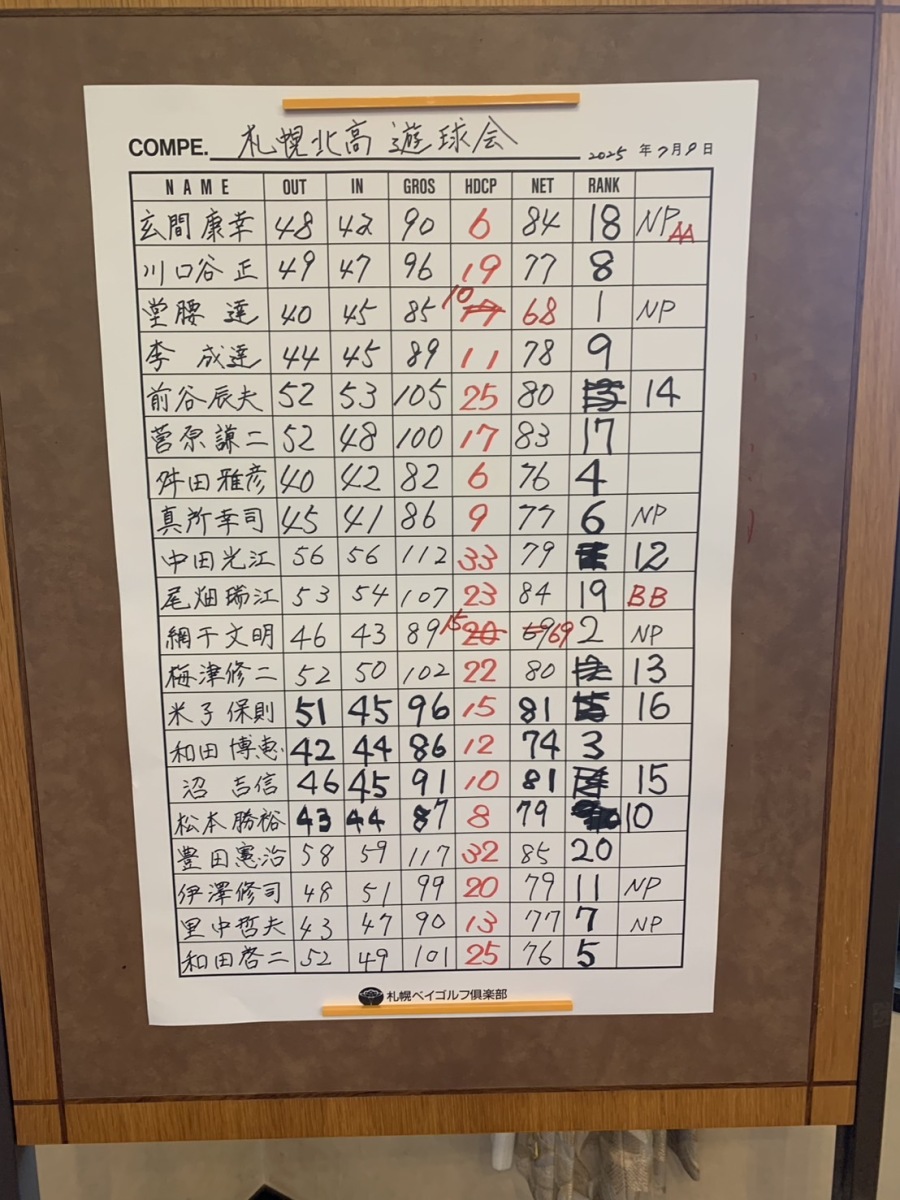 COMPE. 札幌北高 遊球会 2025年7月9日
NAME OUT IN GROS HDCP NET RANK
玄間康幸 48 42 90 6 84 18 NP AA
川口谷正 49 47 96 19 77 8
堂腰達 40 45 85 10 68 1 NP
李成達 44 45 89 11 78 9
前谷辰夫 52 53 105 25 80 14
菅原謙二 52 48 100 17 83 17
舛田雅彦 40 42 82 6 76 4
真所幸司 45 41 86 9 77 6 NP
中田光江 56 56 112 33 79 12
尾畑瑞江 53 54 107 23 84 19 BB
網干文明 46 43 89 15 20 69 69 2 NP
梅津修二 52 50 102 22 80 13
米子保則 51 45 96 15 81 16
和田博恵 42 44 86 12 74 3
沼吉信 46 45 91 10 81 15
松本勝裕 43 44 87 8 79 10
豊田憲治 58 59 117 32 85 20
伊澤修司 48 51 99 20 79 11 NP
里中哲夫 43 47 90 13 77 7 NP
和田啓二 52 49 101 25 76 5
札幌ベイゴルフ倶楽部